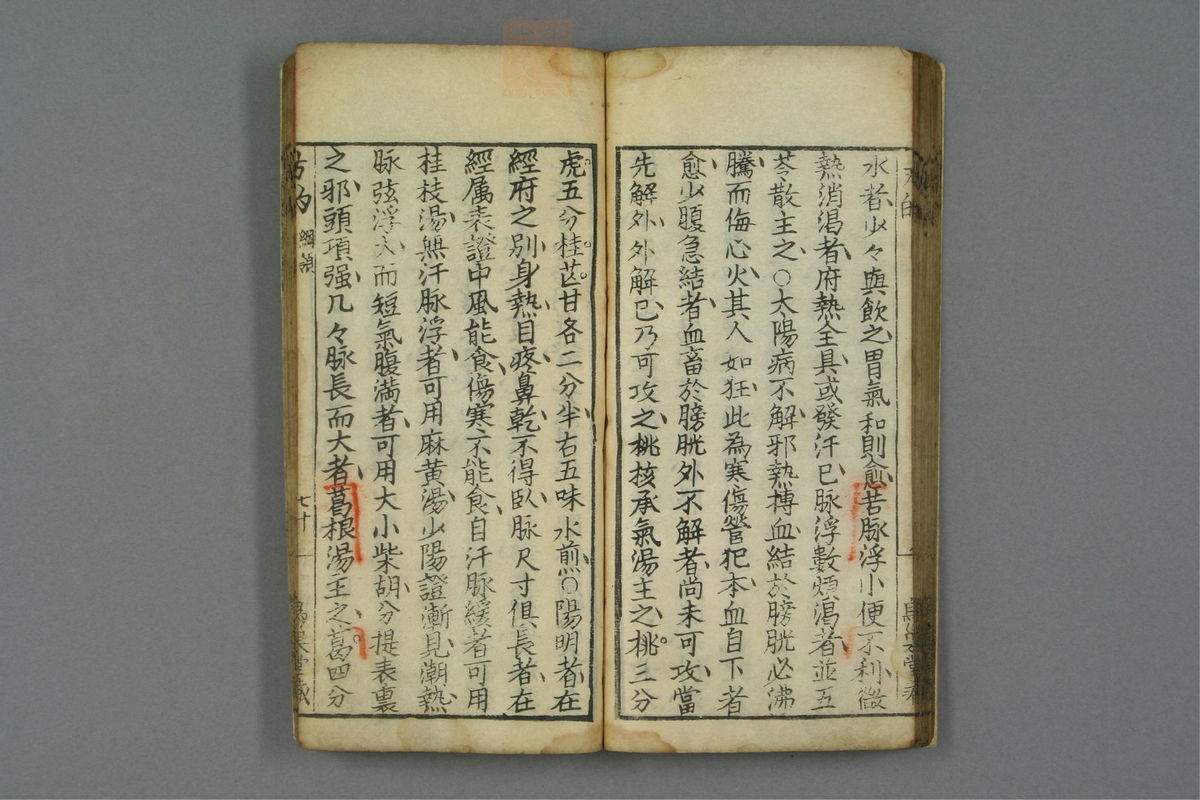 水者少々與飲之胃氣和則愈若脉浮小便不利微
熱消渴者府熱全具或發汗已脉浮數煩渴者並五
苓散主之○太陽病不解邪熱摶血結於膀胱必沸
騰而侮心火其人如狂此為寒傷營犯本血自下者
愈少腹急結者血畜於膀胱外不解者尚未可攻當
先解外外解已乃可攻之桃核承氣湯主之桃三分
虎五分桂芒甘各二分半右五味水煎○陽明者在
經府之別身熱目疼鼻乾不得臥脉尺寸俱長者在
經属表證中風能食傷寒不能食自汗脉緩者可用
桂枝湯無汗脉浮者可用麻黃湯少陽證漸見潮熱
脉弦浮大而短氣腹滿者可用大小柴胡分提表裏
之邪頭項强几々脉長而大者葛根湯主之葛四分
方的 綱領
七十